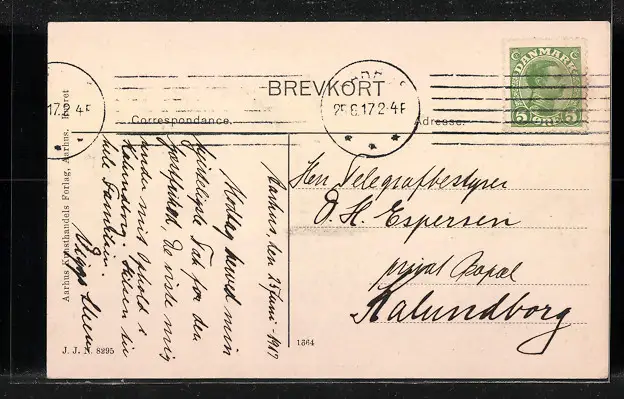 BREVKORT
Correspondance.
Adresse.
DANMARK
5 ØRE 5
25.6.17 2-4 E
17.2 4 E
Hr. Telegrafbestyrer
H. Espersen
privat Bopæl
Kalundborg
Aarhus, den 25 Juni 1917
Modtag herved min
hjerteligste Tak for den
De viste mig
under mit Ophold i
Kalundborg. Hilsen til
hele Familien.
Viggo
Aarhus Kunsthandels Forlag, Aarhus.
J. J. N. 8295
1564